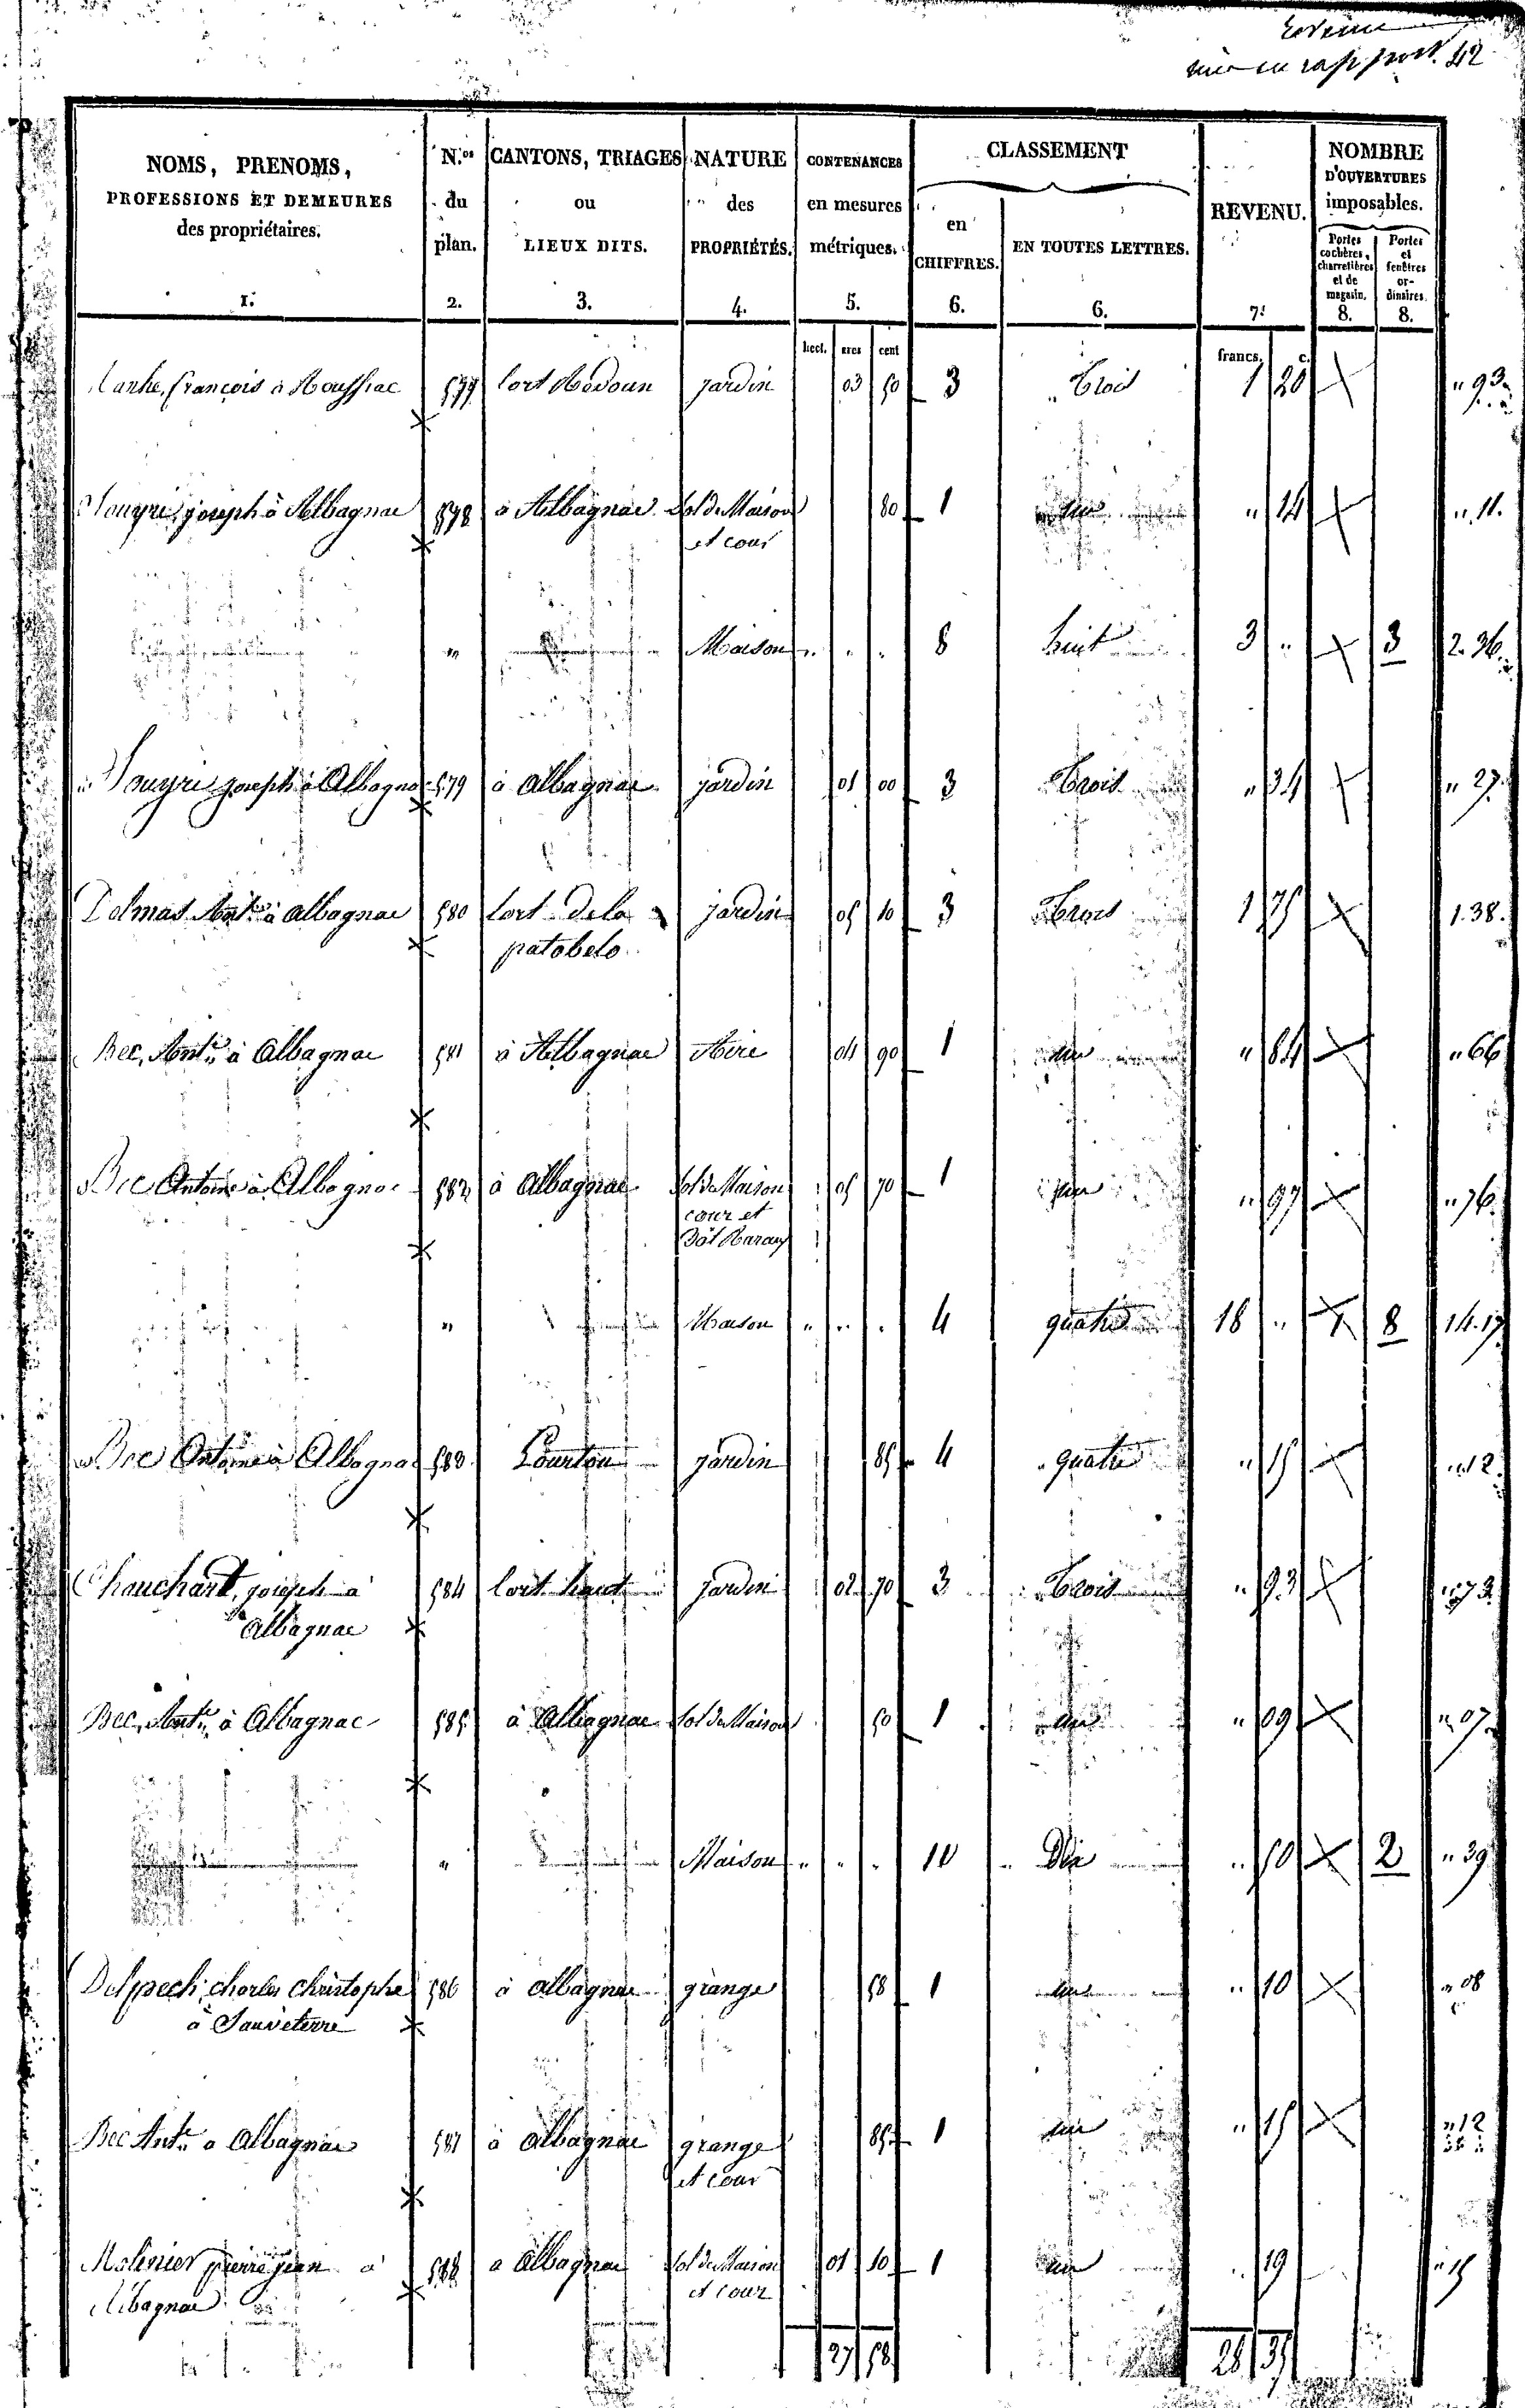 mis en rapport. 42
NOMS, PRENOMS, PROFESSIONS ET DEMEURES des propriétaires. 1.
N.os du plan. 2.
CANTONS, TRIAGES ou LIEUX DITS. 3.
NATURE des PROPRIÉTÉS. 4.
CONTENANCES en mesures métriques. 5.
CLASSEMENT
en CHIFFRES. 6.
EN TOUTES LETTRES. 6.
REVENU. 7.
NOMBRE D'OUVERTURES imposables.
Portes cochères, charretières et de magasin. 8.
Portes et fenêtres ordinaires. 8.
hect. ares cent francs. c.
françois à 577 lort jardin 03 50 3 Trois 1 20 " 93
joseph à Albagnac 578 à Albagnac Sol de Maison 80 1 un " 14 " 11.
et cour
" Maison " " " 8 huit 3 " 3 2. 36
joseph à Albagnac 579 à Albagnac jardin 01 00 3 Trois " 34 " 27
Delmas Ant.e à Albagnac 580 lort dela jardin 05 10 3 Trois 1 75 1. 38.
patobelo
Bec, Ant.e à Albagnac 581 à Albagnac Aire 04 90 1 un " 84 " 66
Bec Antoine à Albagnac 582 à Albagnac Sol de Maison 05 70 1 un " 97 " 76
cour et
" Maison " " " 4 quatre 18 " 8 14. 17
Bec Antoine à Albagnac 583 jardin 85 4 quatre " 15 " 12
Chauchart, joseph à 584 lort haut jardin 02 70 3 Trois " 93 " 73
Albagnac
Bec, Ant.e à Albagnac 585 à Albagnac Sol de Maison 50 1 un " 09 " 07
" Maison " " " 10 Dix " 50 2 " 39
Delpech charles christophe 586 à albagnac grange 58 1 un " 10 " 08
à Sauveterre
Bec Ant.e à Albagnac 587 à albagnac grange 85 1 un " 15 " 12
et cour
Molinier pierre jean à 588 à Albagnac Sol de Maison 01 10 1 un " 19 " 15
Albagnac et cour